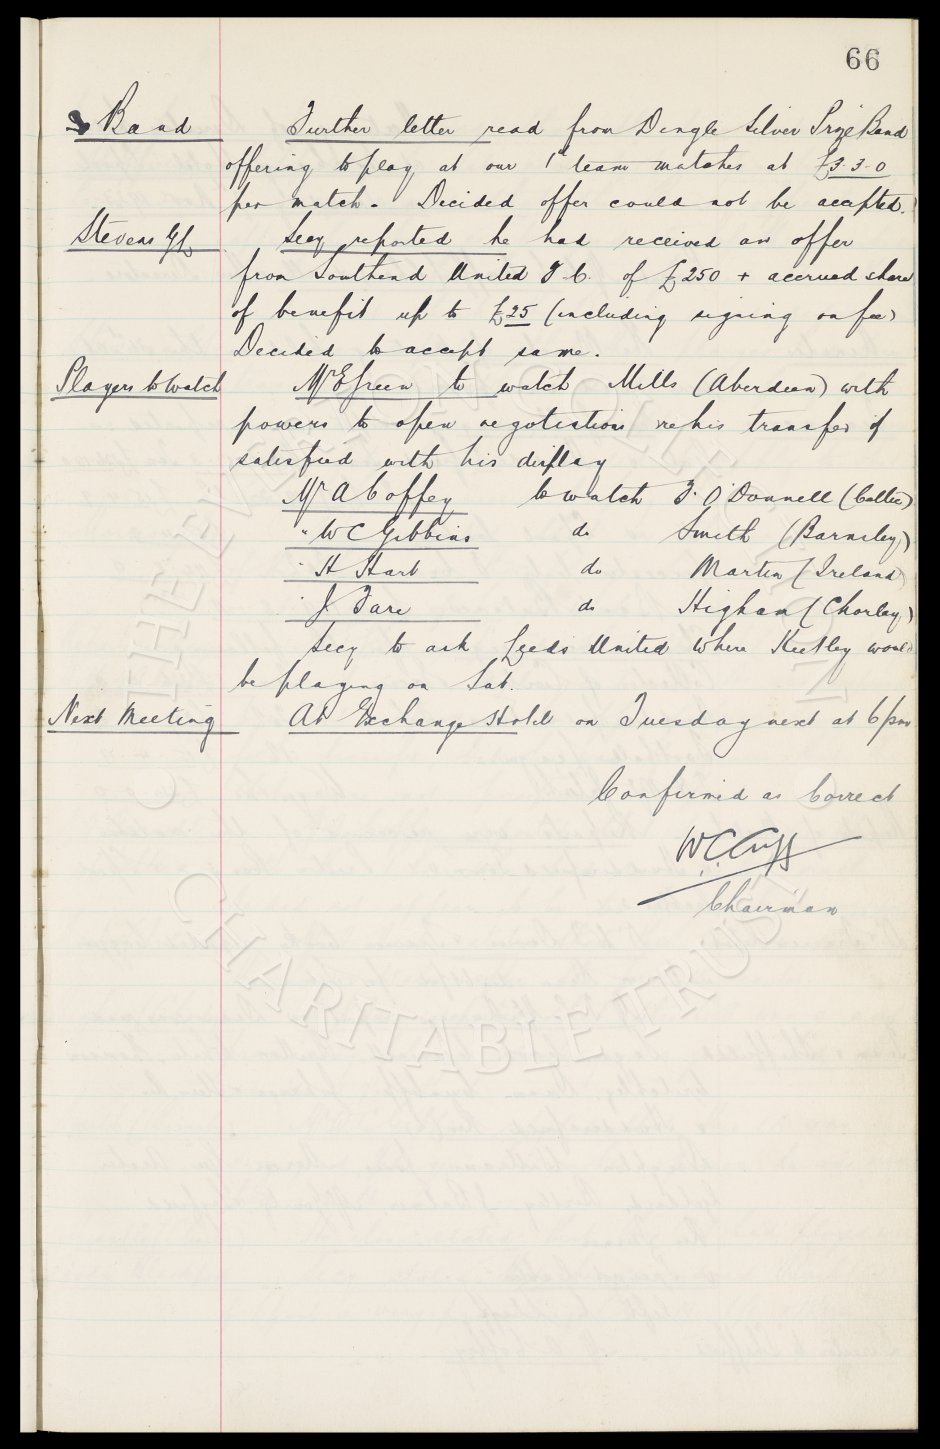 66
Band Further letter read from Dingle Silver Prize Band
offering to play at our 1st team matches at £3-3-0
per match. Decided offer could not be accepted.
Stevens Secy reported he had received an offer
from Southend United F C. of £250 + accrued share
of benefit up to £25 (including signing on fee)
Decided to accept same.
Players to Watch Mr E Green to watch Mills (Aberdeen) with
powers to open negotiations re his transfer if
satisfied with his display
Mr A Coffey to watch F. O'Donnell (Celtic)
" W C Gibbins do Smith (Barnsley)
" H Hart do Martin (Ireland)
" J Fare do Higham (Chorley)
Secy to ask Leeds United where Keetley would
be playing on Sat.
Next Meeting At Exchange Hotel on Tuesday next at 6 pm
Confirmed as Correct
W C Cuff
Chairman
THE EVERTON COLLECTION
CHARITABLE TRUST